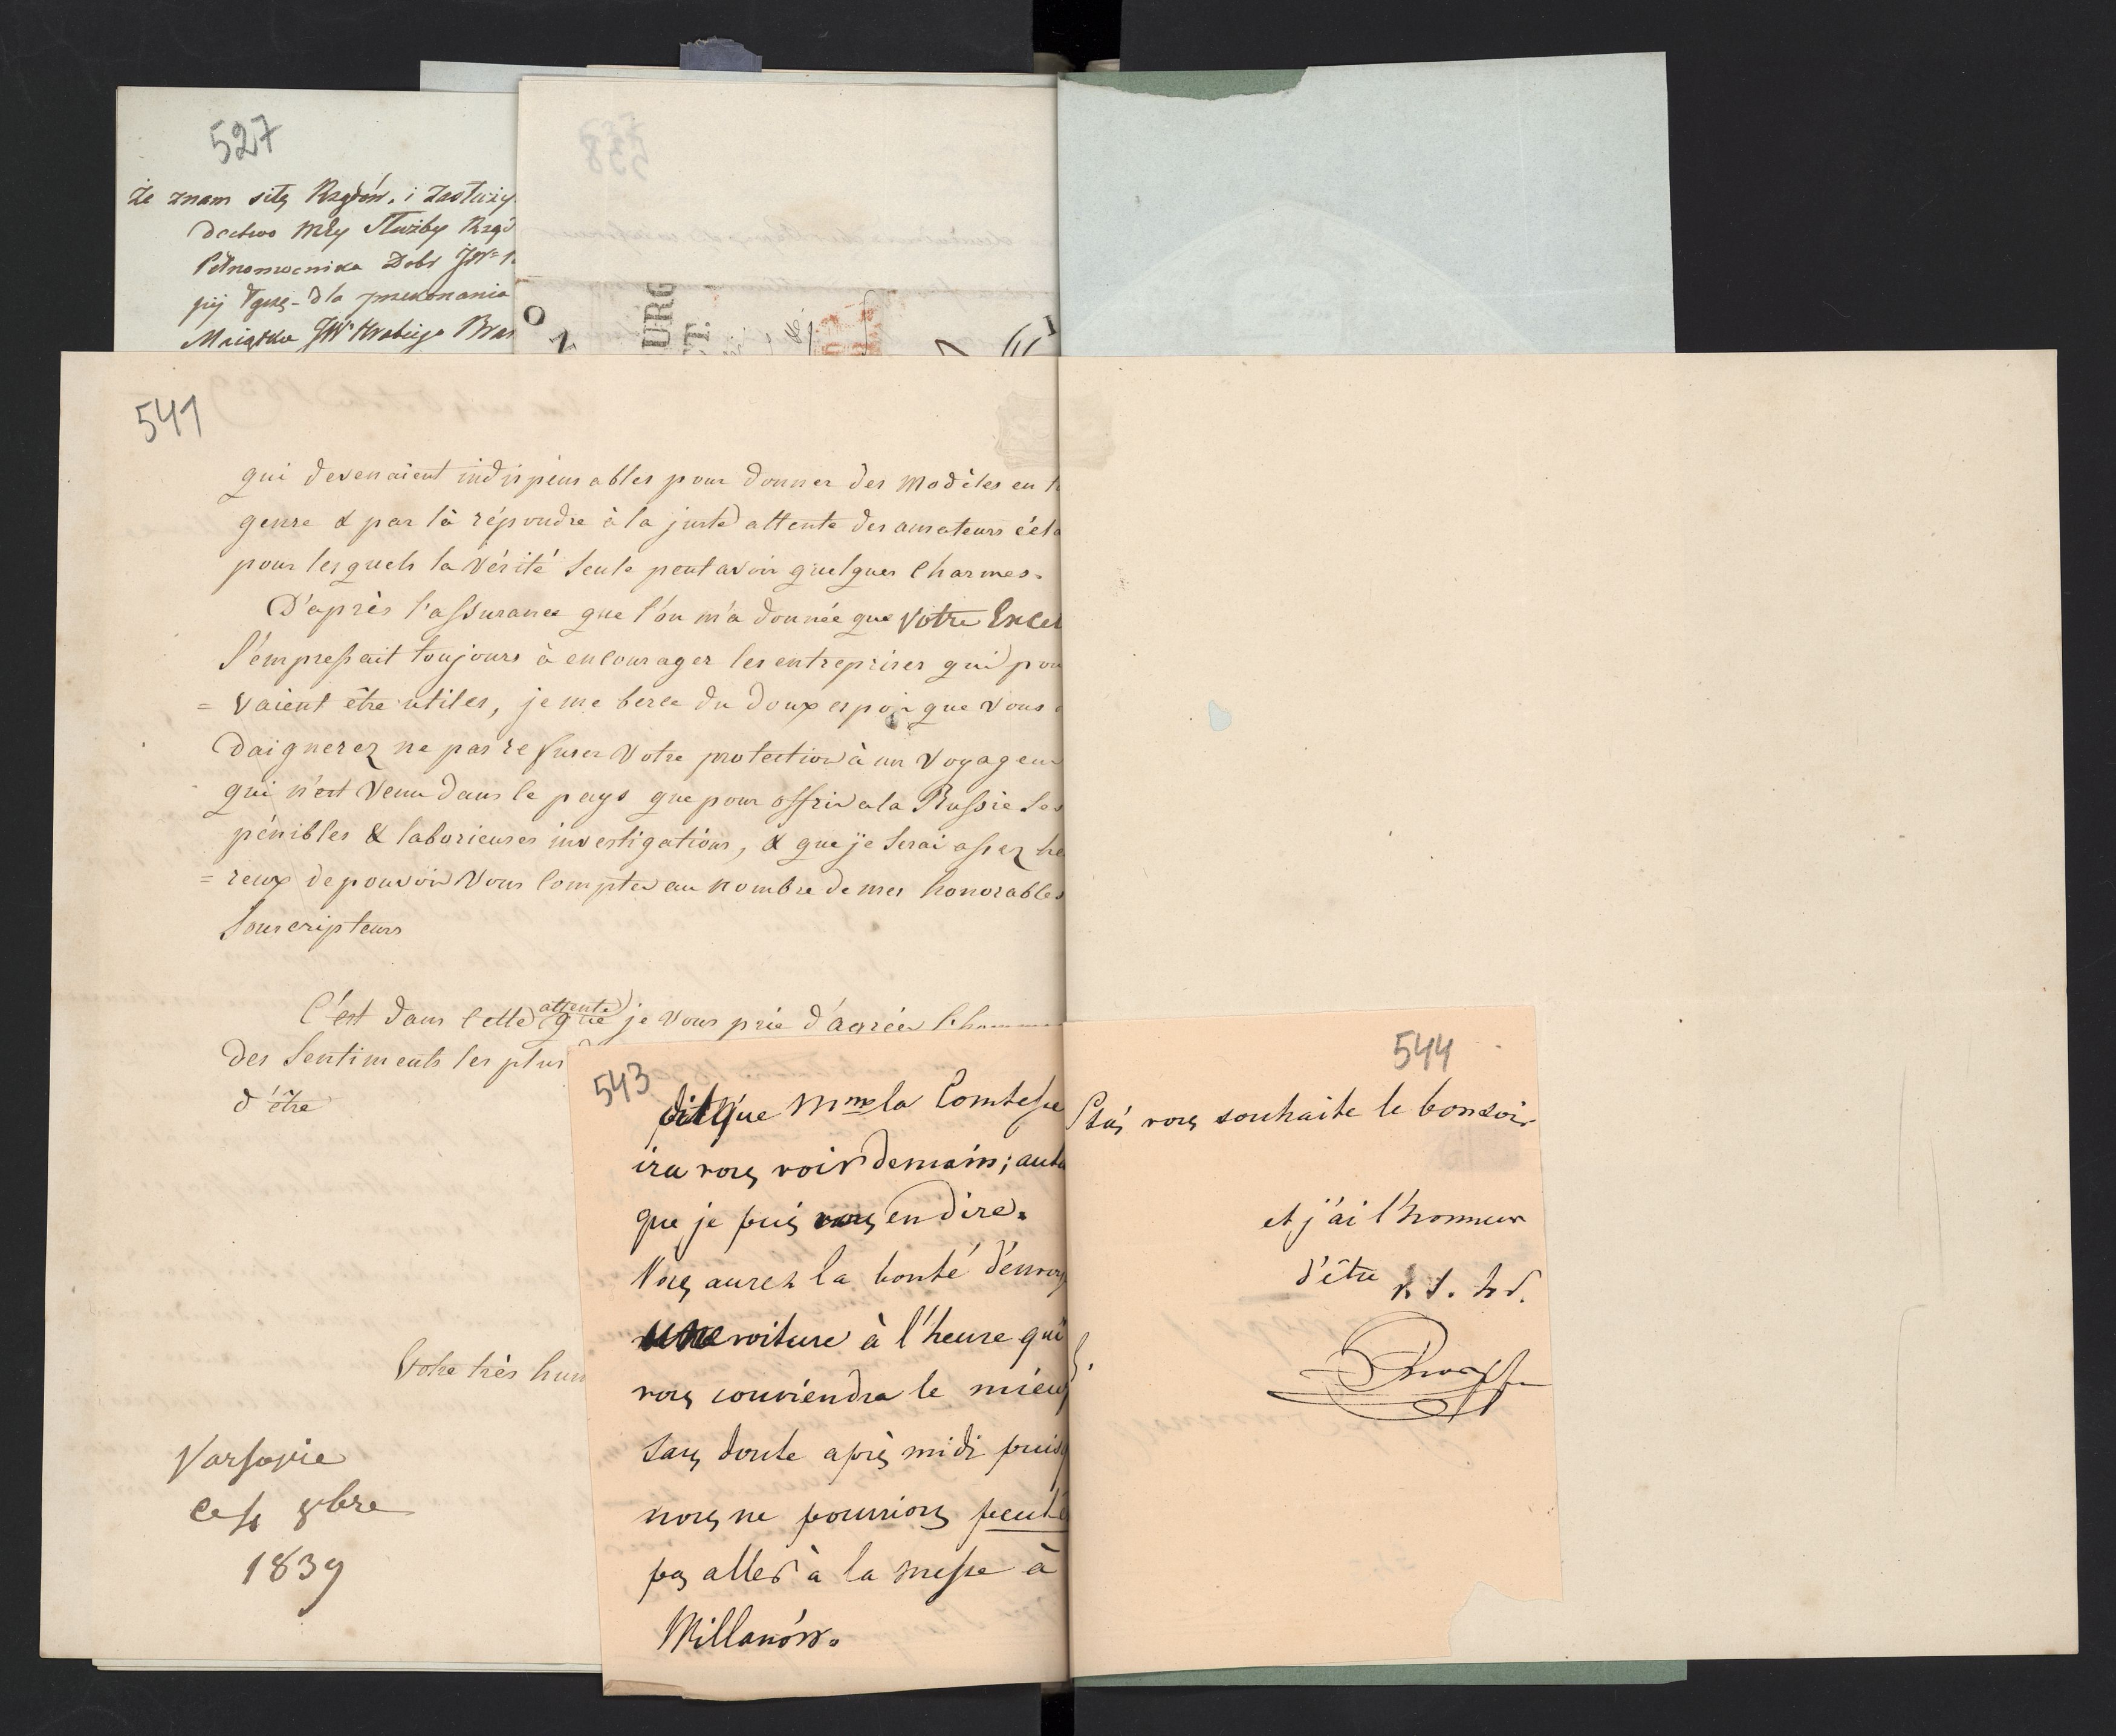 527
że znam siłę Rządów, i
dectwo mey Służby
Pełnomocnika Dobr JW
dla przekonania
Maiątku JW Hrabiego
538
URG
ST.
541
qui devenaient indispensables pour donner des modèles en
genre & par là répondre à la juste attente des amateurs écla
pour lesquels la vérité seule peut avoir quelques Charmes.
D'après l'assurance que l'on m'a donnée que Votre Excel
S'empressait toujours à encourager les entreprises qui pou
= vaient être utiles, je me berce du doux espoir que Vous
Daignerez ne pas refuser Votre protection à un Voyageur
qui n'est Venu dans le pays que pour offrir a la Russie Ses
pénibles & laborieuses investigations, & que je Serai assez he
= reux de pouvoir Vous Compter au nombre de mes honorables
Souscripteurs
C'est dans Cette attente que je Vous prie d'agréer l'homm
des Sentiments les plus
d'être
Votre très hum
Varsovie
ce 4 8bre
1839
543
dit que Mme la Comtesse
ira vous voir demain; aut
que je puis vous en dire.
Vous aurez la bonté d'envoy
une voiture à l'heure qui
vous conviendra le mieux
sans doute après midi puisq
nous ne pourrions peut-ê
pas aller à la messe à
Willanów.
544
Staś vous souhaite le bonsoir
et j'ai l'honneur
d'être